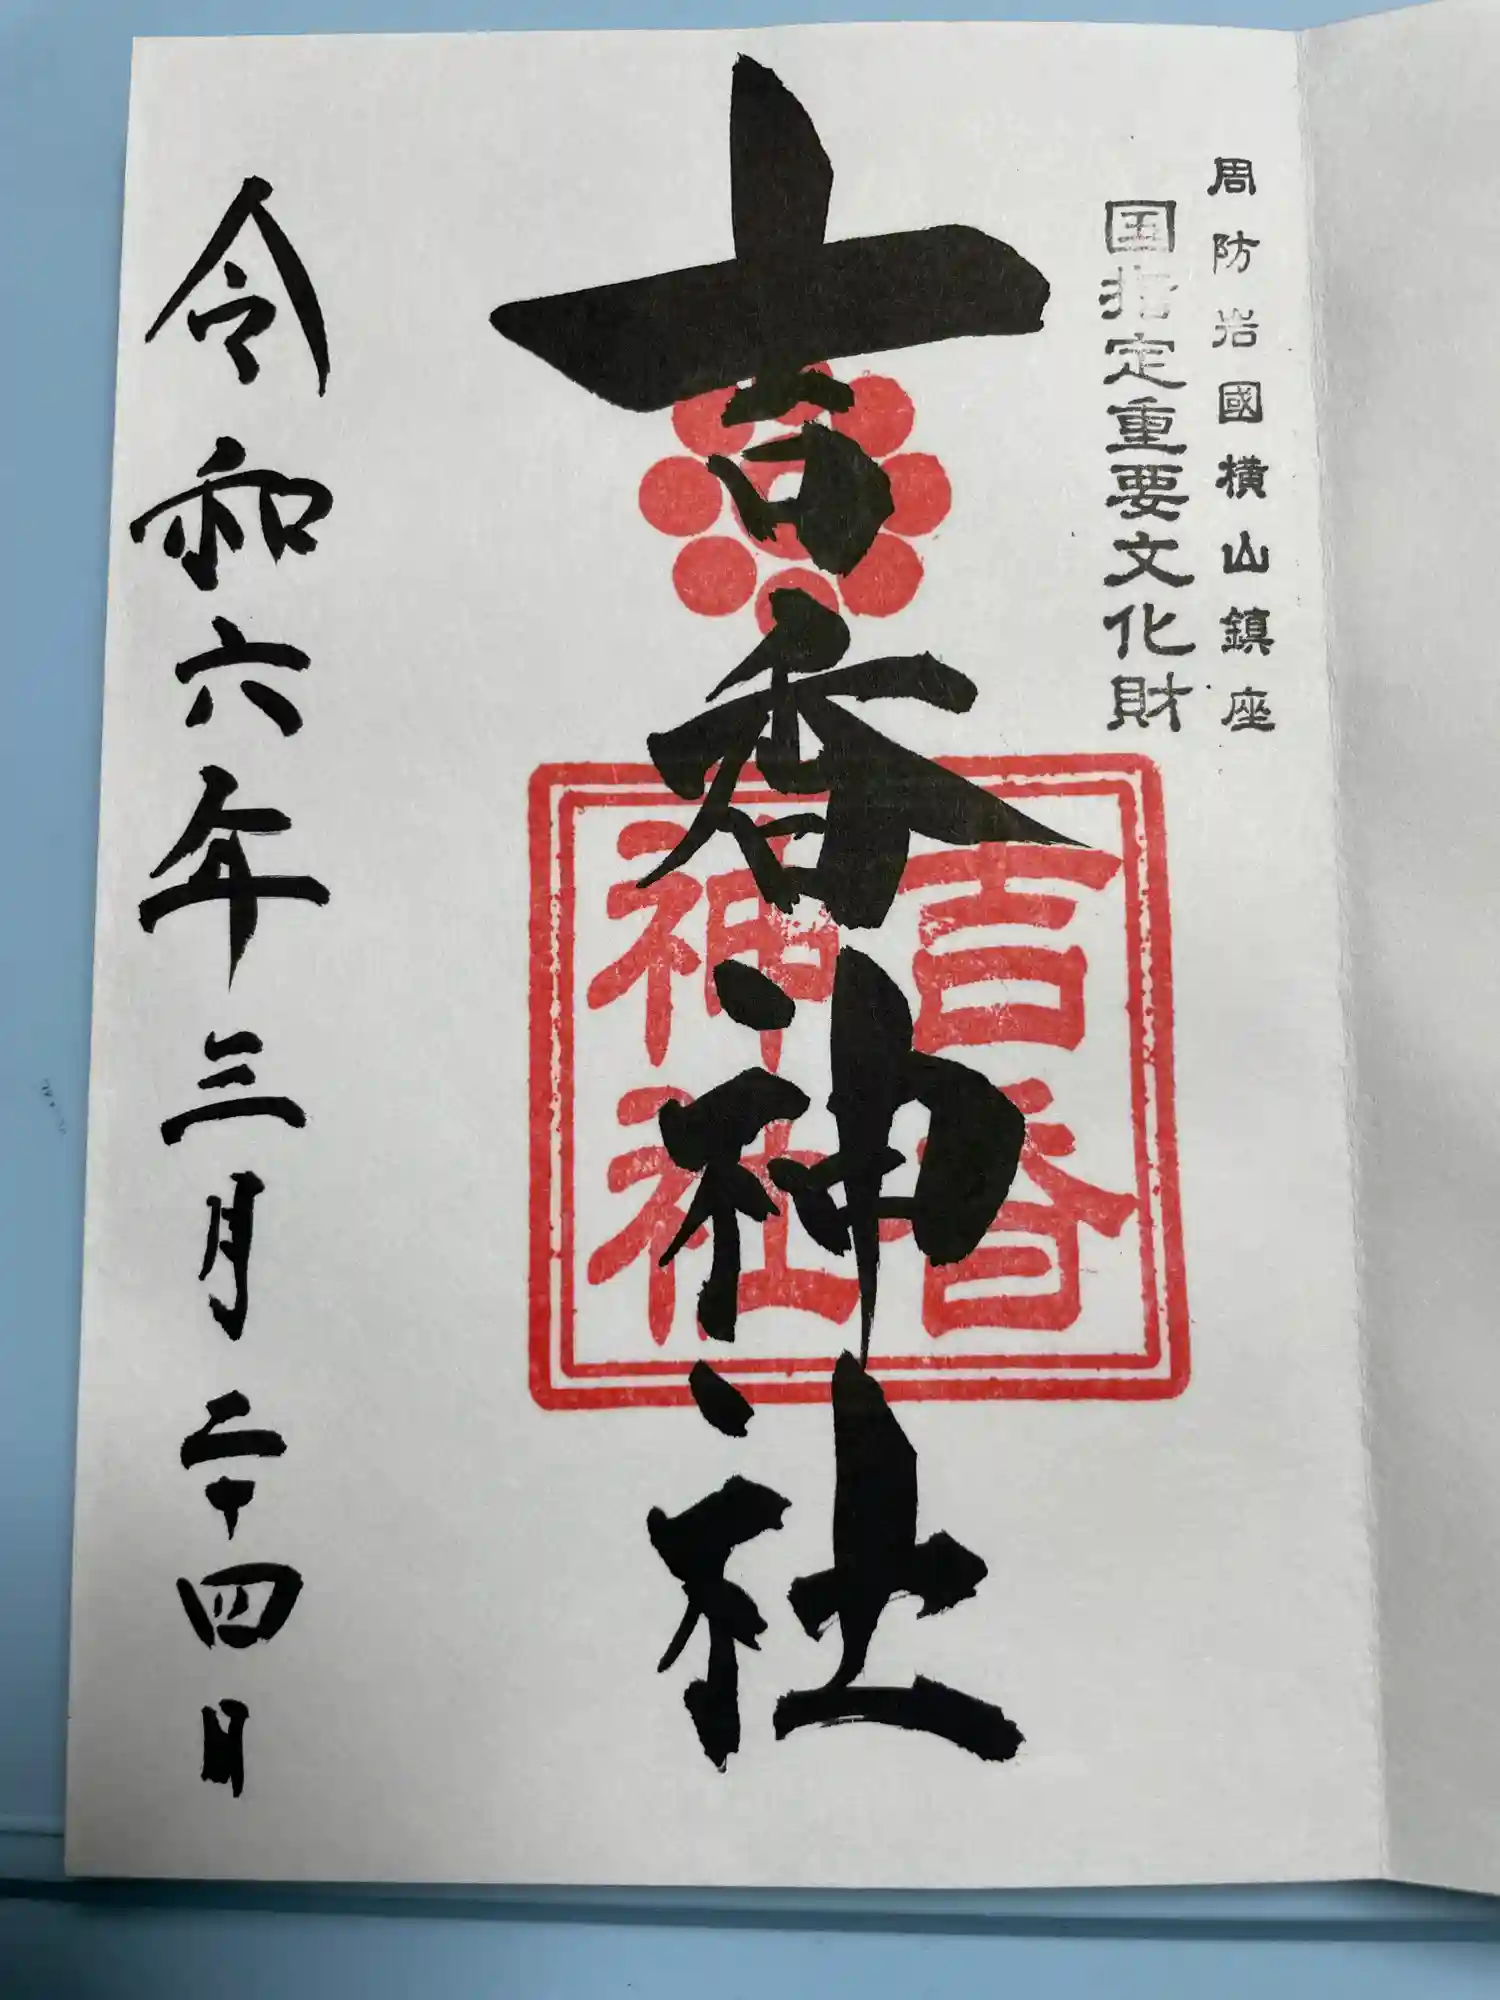 周防岩國横山鎮座
国指定重要文化財
吉香神社
吉香
神社
令和六年三月二十四日